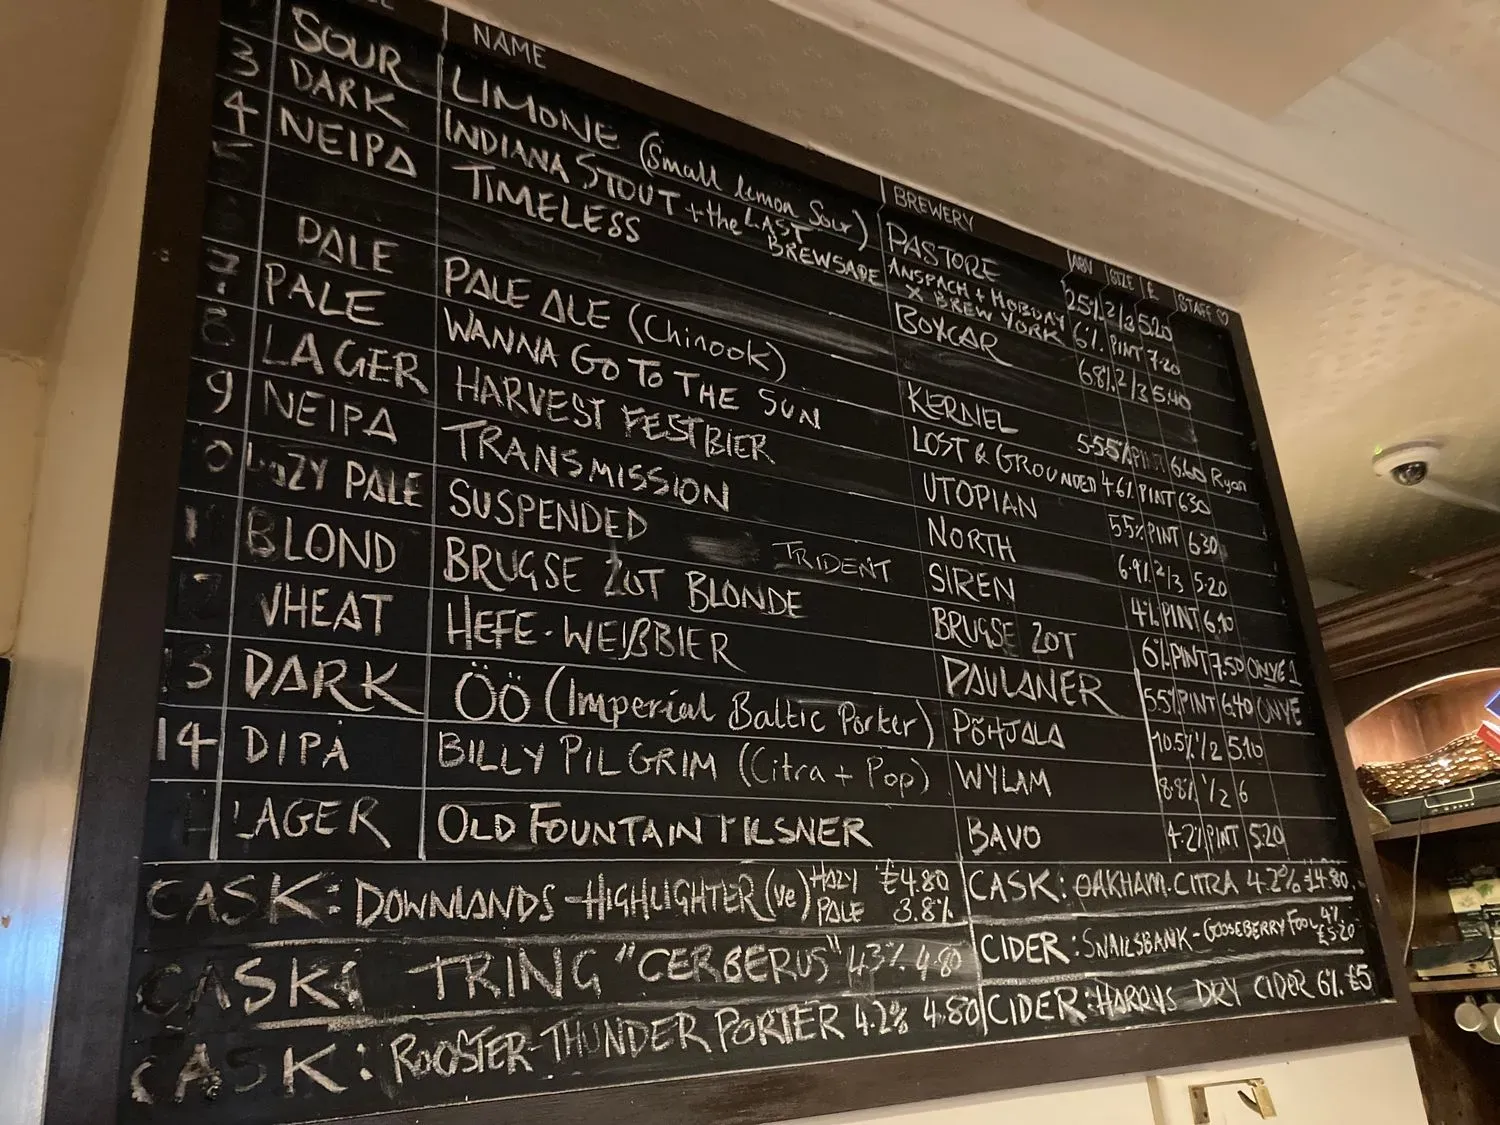 NAME BREWERY ABV SIZE £ STAFF ♡
SOUR LIMONE (Small lemon Sour) PASTORE 2.5% 2/3 5.20
3 DARK INDIANA STOUT + the LAST BREWSADE ANSPACH + HOBDAY X BREW YORK 6% PINT 7.20
4 NEIPA TIMELESS BOXCAR 6.8% 2/3 5.40
5
PALE PALE ALE (Chinook) KERNEL 5.55% PINT 6.60 Ryan
7 PALE WANNA GO TO THE SUN LOST & GROUNDED 4.6% PINT 6.30
8 LAGER HARVEST FESTBIER UTOPIAN 5.5% PINT 6.30
9 NEIPA TRANSMISSION NORTH 6.9% 2/3 5.20
0 HAZY PALE SUSPENDED TRIDENT SIREN 4% PINT 6.10
1 BLOND BRUGSE ZOT BLONDE BRUGSE ZOT 6% PINT 7.50 ONYE 1
WHEAT HEFE-WEIßBIER PAULANER 5.5% PINT 6.40 ONYE
13 DARK ÖÖ (Imperial Baltic Porter) PÕHJALA 10.5% 1/2 5.10
14 DIPA BILLY PILGRIM (Citra + Pop) WYLAM 8.8% 1/2 6
LAGER OLD FOUNTAIN PILSNER BAVO 4.2% PINT 5.20
CASK: DOWNLANDS-HIGHLIGHTER (ve) HAZY PALE £4.80 3.8%
CASK: OAKHAM-CITRA 4.2% £4.80.
CASK: TRING "CERBERUS" 4.3% 4.80
CIDER: SNAILSBANK-GOOSEBERRY FOOL 4% £5.20
CASK: ROOSTER-THUNDER PORTER 4.2% 4.80
CIDER: HARRYS DRY CIDER 6% £5